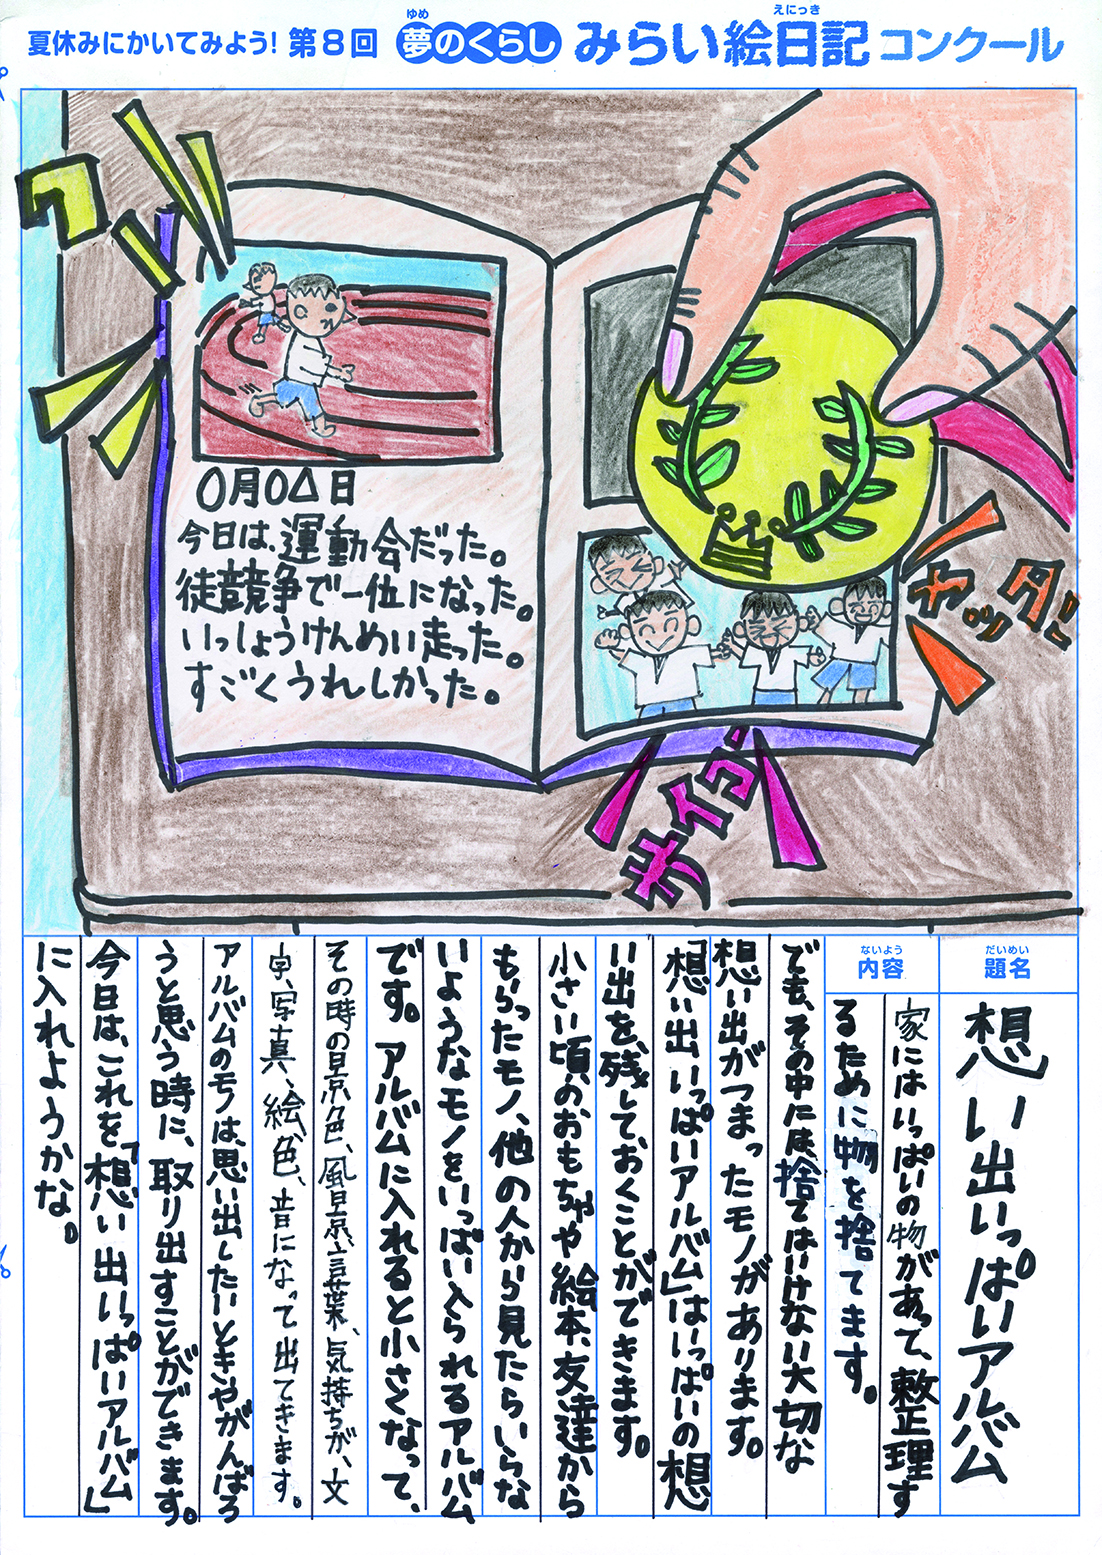 夏休みにかいてみよう! 第8回 夢のくらし みらい絵日記 コンクール
ゆめ
えにっき
ワッ
〇月〇△日
今日は、運動会だった。
徒競争で一位になった。
いっしょうけんめい走った。
すごくうれしかった。
ヤッタ!
サイコー
だいめい
題名
想い出いっぱいアルバム
ないよう
内容
家にはいっぱいの物があって、整理す
るために物を捨てます。
でも、その中には、捨てはいけない大切な
想い出がつまったモノがあります。
「想い出いっぱいアルバム」はいっぱいの想
い出を、残しておくことができます。
小さい頃のおもちゃや絵本、友達から
もらったモノ、他の人から見たらいらな
いようなモノをいっぱい入られるアルバム
です。アルバムに入れると小さくなって、
その時の景色、風景、言葉、気持ちが、文
字、写真、絵、色、音になって出てきます。
アルバムのモノは、思い出したいときやがんばろ
うと思う時に、取り出すことができます。
今日は、これを「想い出いっぱいアルバム」
に入れようかな。